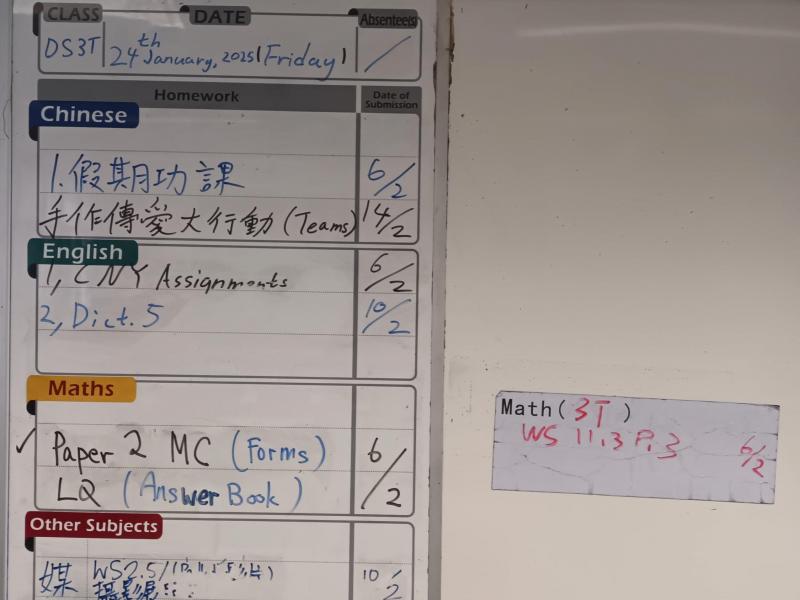 CLASS DATE Absentee(s)
DS3T 24th January, 2025 (Friday) /
Homework Date of Submission
Chinese
1. 假期功課 6/2
手作傳愛大行動 (Teams) 14/2
English
1, CNY Assignments 6/2
2, Dict. 5 10/2
Maths
✓ Paper 2 MC (Forms) 6/2
LQ (Answer Book)
Math(3T)
WS 11.3 P.3 6/2
Other Subjects
媒 WS2.5/ 10/2